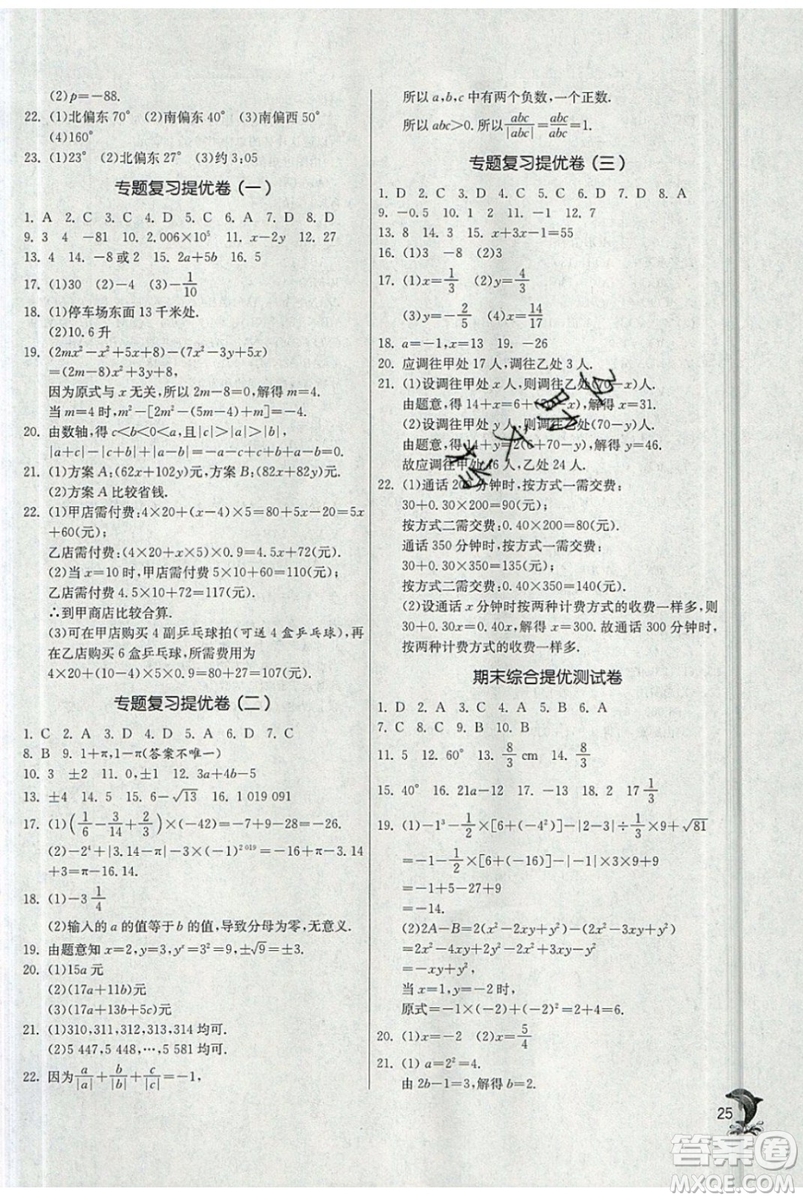 (2)p=−88.
22. (1)北偏东70° (2)南偏东20° (3)南偏西50°
(4)160°
23. (1)23° (2)北偏东 (3)约3:05
专题复习提优卷(一)
1. A 2. C 3. C 4. D 5. C 6. C 7. D 8. D
9. 3 4 −81 10. 2.006×10⁵ 11. x−2y 12. 27
13. 4 14. −8或2 15. 2a+5b 16. 5
17. (1)30 (2)−4 (3)−1/10
18. (1)停车场东面13千米处.
(2)10.6升
19. (2mx²−x²+5x+8)−(7x²−3y+5x)
=(2m−8)x²+3y+8,
因为原式与x无关,所以2m−8=0,解得m=4.
当m=4时,m²−[2m²−(5m−4)+m]=−4.
20. 由数轴,得c<b<0<a,且|c|>|a|>|b|,
|a+c|−|a−b|+|b+c|−|b|=−a−2c+b.
21. (1)方案A:(62x+102y)元,方案B:(82x+60y)元.
(2)方案A比较省钱.
22. (1)甲店需付费:4×20+(x−4)×5=80+5x−20=5x
+60(元);
乙店需付费:(4×20+x×5)×0.9=4.5x+72(元).
(2)当x=10时,甲店需付费5×10+60=110(元);
乙店需付费4.5×10+72=117(元).
∴到甲商店比较合算.
(3)可在甲店购买4副乒乓球拍(可送4盒乒乓球),再
在乙店购买6盒乒乓球,所需费用为
4×20+(10−4)×5×0.9=80+27=107(元).
专题复习提优卷(二)
1. C 2. A 3. D 4. D 5. A 6. D 7. C
8. B 9. 1+π,1−π(答案不唯一)
10. 3 ±2 11. > 12. 3a+4b−5
13. ±4 14. 5 15. 6−√13 16. 1 019 091
17. (1)(1/6−3/14+2/3)×(−42)=−7+9−28=−26.
(2)−2⁴+|3.14−π|×(−1)^2 019=−16+π−3.14
+3=π−16.14.
18. (1)−3 1/4
(2)输入的a的值等于b的值,导致分母为零,无意义.
19. 由题意知x=2,y=3,x²+y²−4=9,±√9=±3.
20. (1)15a元
(2)(17a+11b)元
(3)(17a+13b+5c)元
21. (1)310,311,312,313,314均可.
(2)5 447,5 448,…,5 581均可.
22. 因为a/|a|+b/|b|+c/|c|=−1,
所以a,b,c中有两个负数,一个正数.
所以abc>0.所以abc/|abc|=abc/abc=1.
专题复习提优卷(三)
1. D 2. C 3. B 4. C 5. D 6. D 7. D 8. A
9. −0.5 10. 1 2 11. −1 12. 7
13. 8 14. 3 15. x+3x−1=55
16. (1)3 −8 (2)3
17. (1)x=1/3 (2)y=4/3
(3)y=−2/5 (4)x=14/17
18. a=−1,x=13 19. −26
20. 应调往甲处17人,调往乙处3人.
21. (1)设调往甲处x人,则调往乙处(70−x)人.
由题意,得14+x=6+(70−x),解得x=31.
(2)设调往甲处y人,则调往乙处(70−y)人.
由题意,得14+y=2(6+70−y),解得y=46.
故应调往甲处46人,乙处24人.
22. (1)通话200分钟时,按方式一需交费:
30+0.30×200=90(元);
按方式二需交费:0.40×200=80(元);
通话350分钟时,按方式一需交费:
30+0.30×350=135(元);
按方式二需交费:0.40×350=140(元).
(2)设通话x分钟时按两种计费方式的收费一样多,则
30+0.30x=0.40x,解得x=300.故通话300分钟时,
按两种计费方式的收费一样多.
期末综合提优测试卷
1. D 2. A 3. C 4. B 5. D 6. A
7. C 8. C 9. B 10. B
11. 5 12. 60° 13. 8/3 cm 14. 8/3
15. 40° 16. 21 17. −13 18. 2 17 1/3
19. (1)−1³−1/2×[6+(−4²)]−|2−3|÷1/3×9+√81
=−1−1/2×[6+(−16)]−|−1|×3×9+9
=−1+5−27+9
=−14.
(2)2A−B=2(x²−xy+y²)−(−2xy+y²)
=2x²−2xy+2y²+2xy−y²
=2x²+y².
当x=−1,y=2时,
原式=2×(−1)²+2²=2+4=6.
20. (1)x=−2 (2)x=5/4
21. (1) a=2²=4.
由2b−1=3,解得b=2.
25
答案圈
MXQE.COM